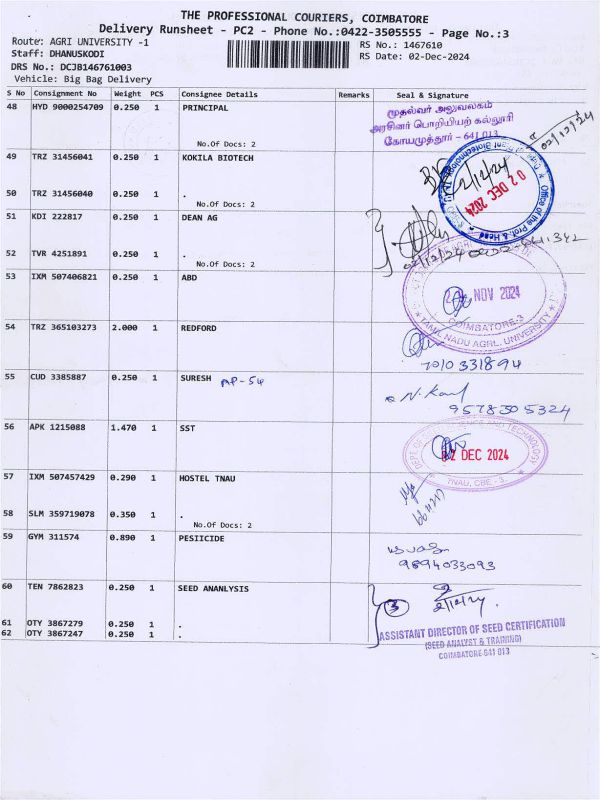 THE PROFESSIONAL COURIERS, COIMBATORE
Delivery Runsheet - PC2 - Phone No.:0422-3505555 - Page No.:3
Route: AGRI UNIVERSITY -1
RS No.: 1467610
Staff: DHANUSKODI
RS Date: 02-Dec-2024
DRS No.: DCJB146761003
Vehicle: Big Bag Delivery
S No Consignment No Weight PCS Consignee Details Remarks Seal & Signature
48 HYD 9000254709 0.250 1 PRINCIPAL
முதல்வர் அலுவலகம்
அரசினர் பொறியியற் கல்லூரி
கோயமுத்தூர் - 641 013
02/12/24
No.Of Docs: 2
49 TRZ 31456041 0.250 1 KOKILA BIOTECH
2/12/24
02 DEC 2024
Office of the Prof. & Head
50 TRZ 31456040 0.250 1 .
No.Of Docs: 2
51 KDI 222817 0.250 1 DEAN AG
02/12/24
52 TVR 4251891 0.250 1 .
No.Of Docs: 2
53 IXM 507406821 0.250 1 ABD
NOV 2024
COIMBATORE-3
TAMIL NADU AGRL. UNIVERSITY
54 TRZ 365103273 2.000 1 REDFORD
7010331894
55 CUD 3385887 0.250 1 SURESH AP-54
9578305324
56 APK 1215088 1.470 1 SST
SCIENCE AND TECHNOLOGY
02 DEC 2024
TNAU, CBE - 3.
57 IXM 507457429 0.290 1 HOSTEL TNAU
58 SLM 359719078 0.350 1 .
No.Of Docs: 2
59 GYM 311574 0.890 1 PESIICIDE
9694033093
60 TEN 7862823 0.250 1 SEED ANANLYSIS
3
2/12/24
61 OTY 3867279 0.250 1 .
62 OTY 3867247 0.250 1 .
ASSISTANT DIRECTOR OF SEED CERTIFICATION
(SEED ANALYST & TRAINING)
COIMBATORE-641 013